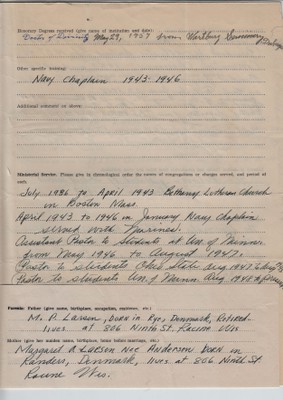 Honorary Degree received (give name of institution and date).
Doctor of Divinity May 29, 1959 from Wartburg Seminary Dubuque
Other specific training:
Navy Chaplain 1943-1946
Additional comment on above:
Ministerial Service. Please give in chronological order the names of congregations or charges served, and period of each.
July 1936 to April 1943 Bethany Lutheran Church
in Boston Mass.
April 1943 to 1946 in January Navy Chaplain
served with Marines.
Assistant Pastor to students at Un. of Minner.
from May 1946 to August 1947.
Pastor to students Ohio State Aug 1947 to Aug
Pastor to students Un. of Minn. Aug 1948
Parents: Father (give name, birthplace, occupation, residence, etc.)
M. P. Larsen, born in Rye, Denmark, Retired.
lives at 806 Ninth St. Racine Wis
Mother (give her maiden name, birthplace, home before marriage, etc.)
Margaret A Larsen nee Anderson born in
Randers, Denmark, lives at 806 Ninth St
Racine Wis.